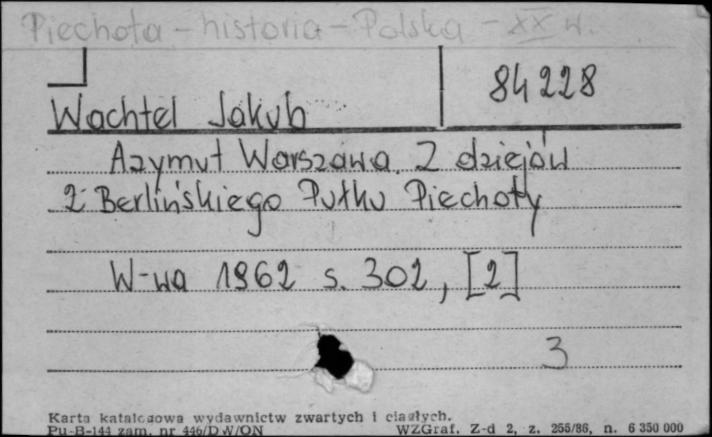 Piechota - historia - Polska - XX w.
84228
Wachtel Jakub
Azymut Warszawa. Z dziejów
2 Berlińskiego Pułku Piechoty
W-wa 1962 s. 302, [2]
3
Karta katalogowa wydawnictw zwartych i ciągłych.
Pu-B-144 zam. nr 446/DW/ON WZGraf. Z-d 2, z. 255/86, n. 6 350 000